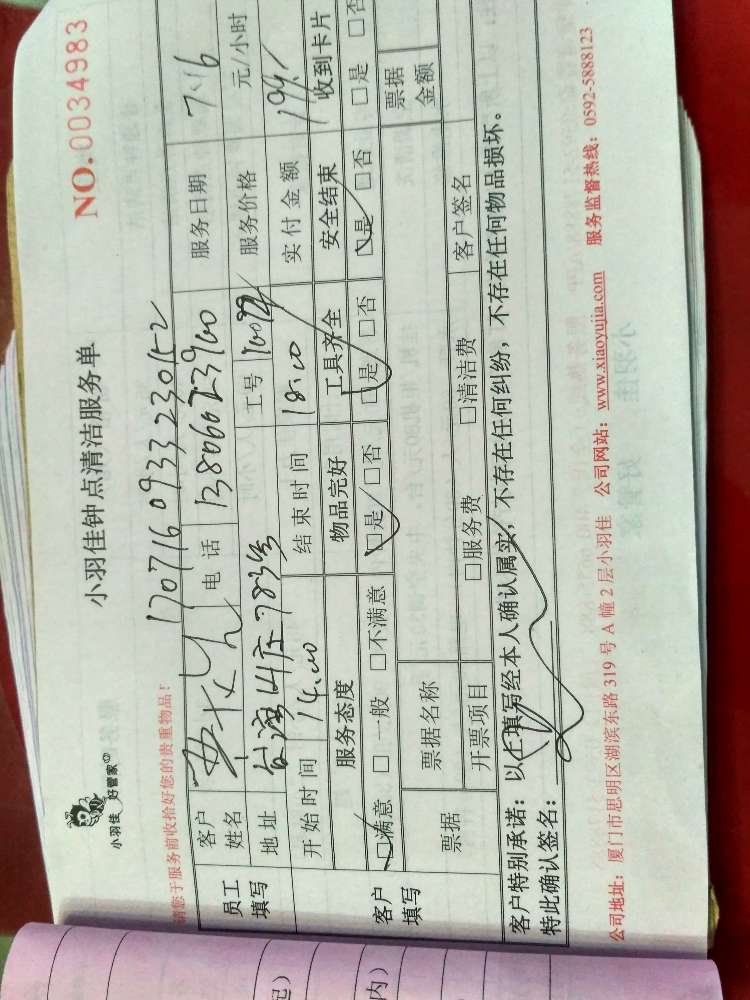 小羽佳 好管家
小羽佳钟点清洁服务单
NO.0034983
请您于服务前收拾好您的贵重物品!
1707160933230152
员工填写
客户姓名
电话 13806023900
服务日期 7.16
地址 785号
工号
服务价格 元/小时
开始时间 14.00
结束时间 18.00
实付金额
客户填写
服务态度 物品完好 工具齐全 安全结束 收到卡片
□满意 □一般 □不满意 □是 □否 □是 □否 □是 □否 □是 □否
票据 票据名称 票据金额
开票项目 □服务费 □清洁费 客户签名
客户特别承诺:以上填写经本人确认属实,不存在任何纠纷,不存在任何物品损坏。
特此确认签名:
公司地址:厦门市思明区湖滨东路 319 号 A 幢 2 层小羽佳 公司网站:www.xiaoyujia.com 服务监督热线:0592-5888123
起)
内)